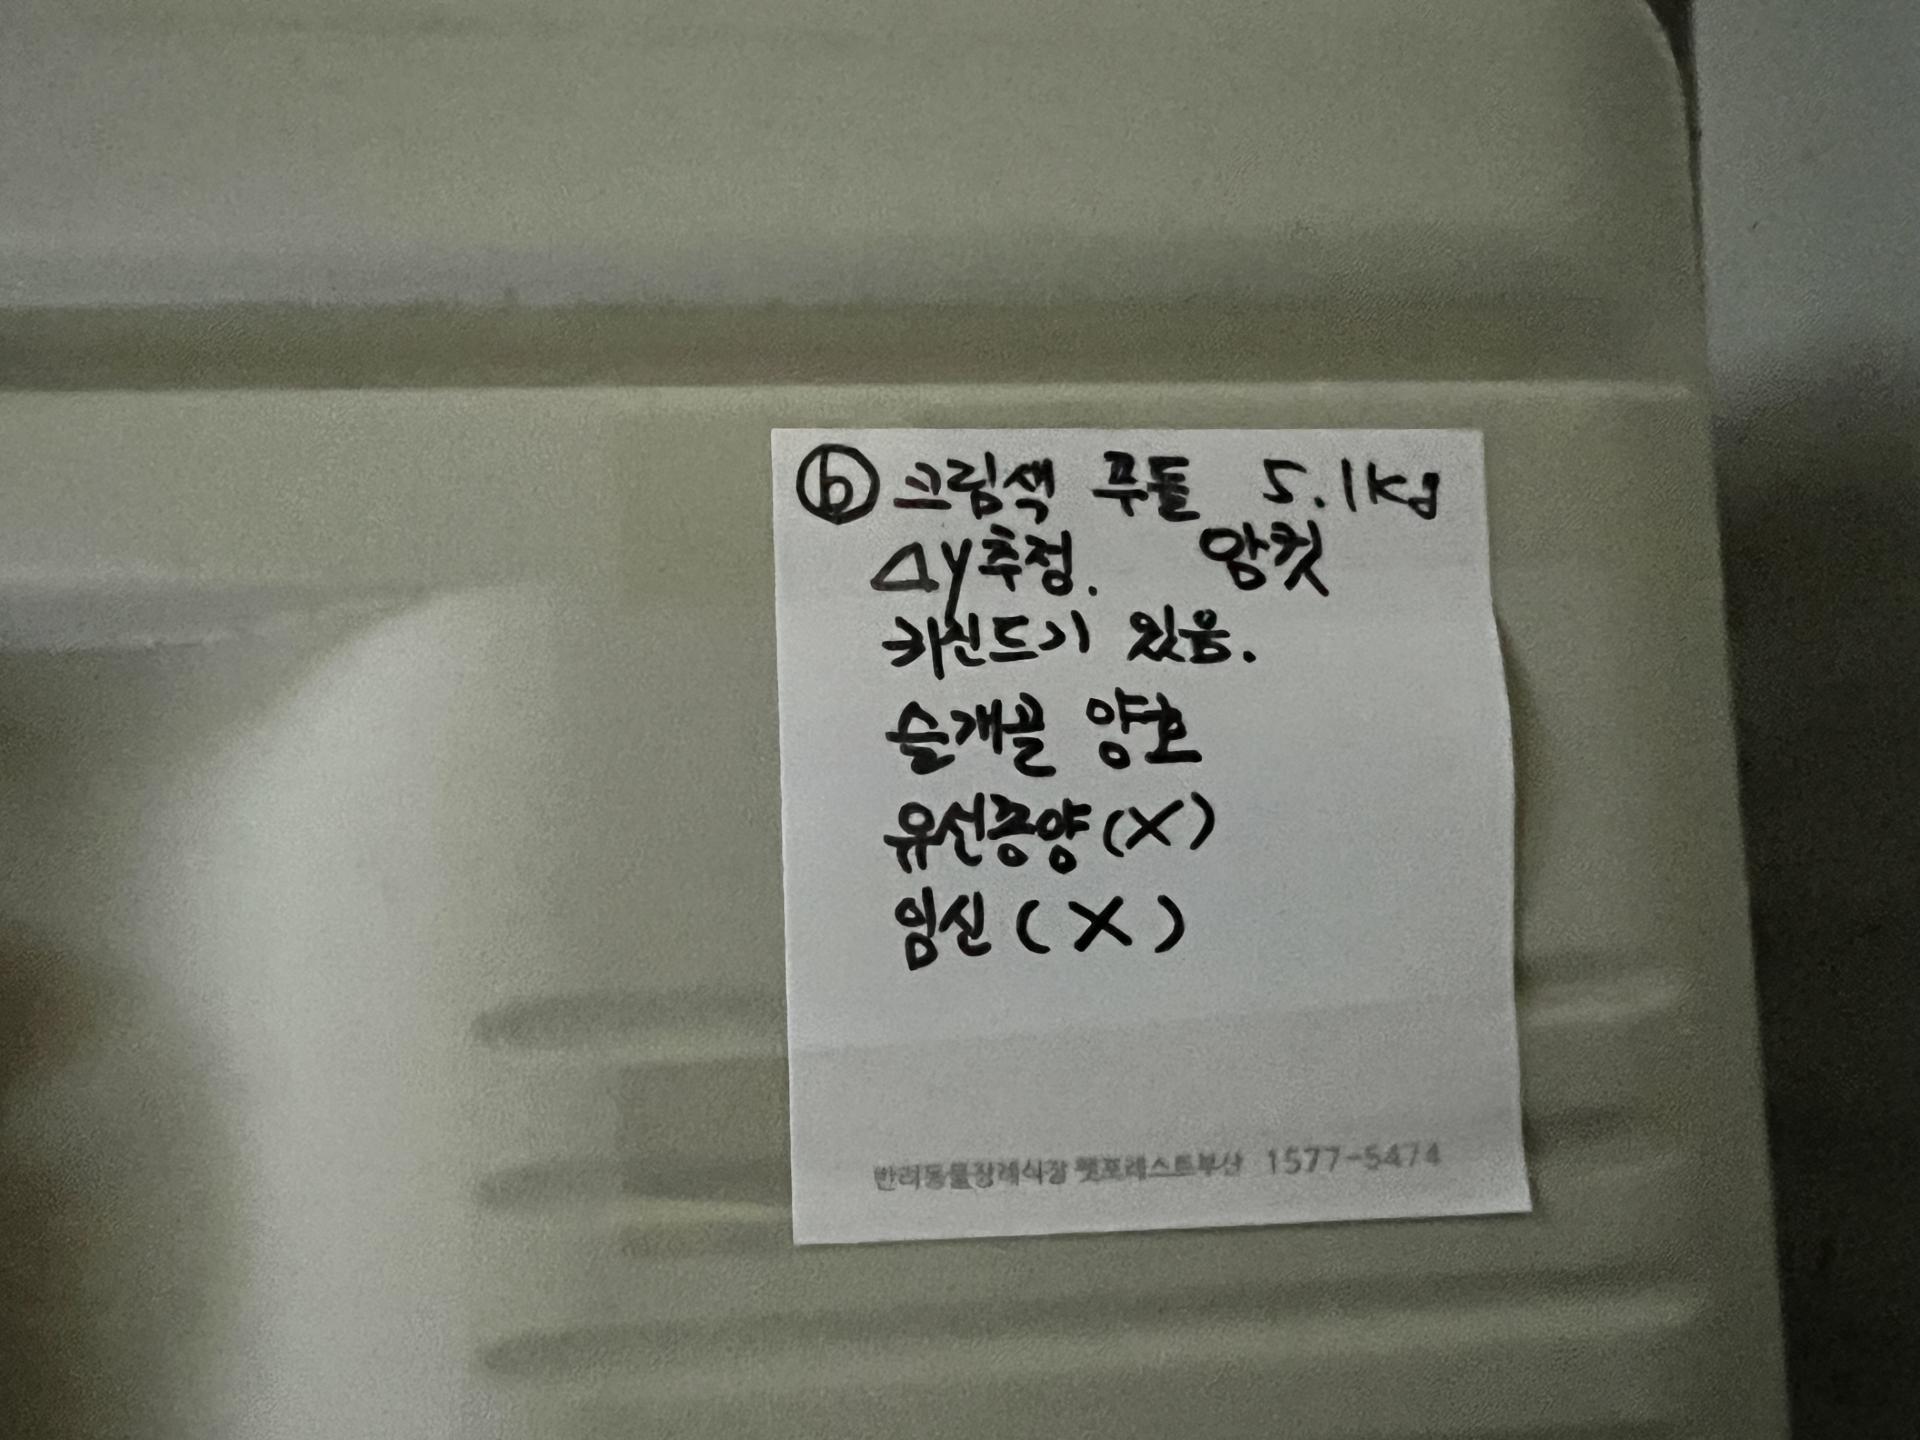 ⓑ 크림색 푸들 5.1kg
△y추정. 암컷
카진드기 있음.
슬개골 양호
유선종양(X)
임신(X)
반려동물장례식장 펫포레스트부산 1577-5474